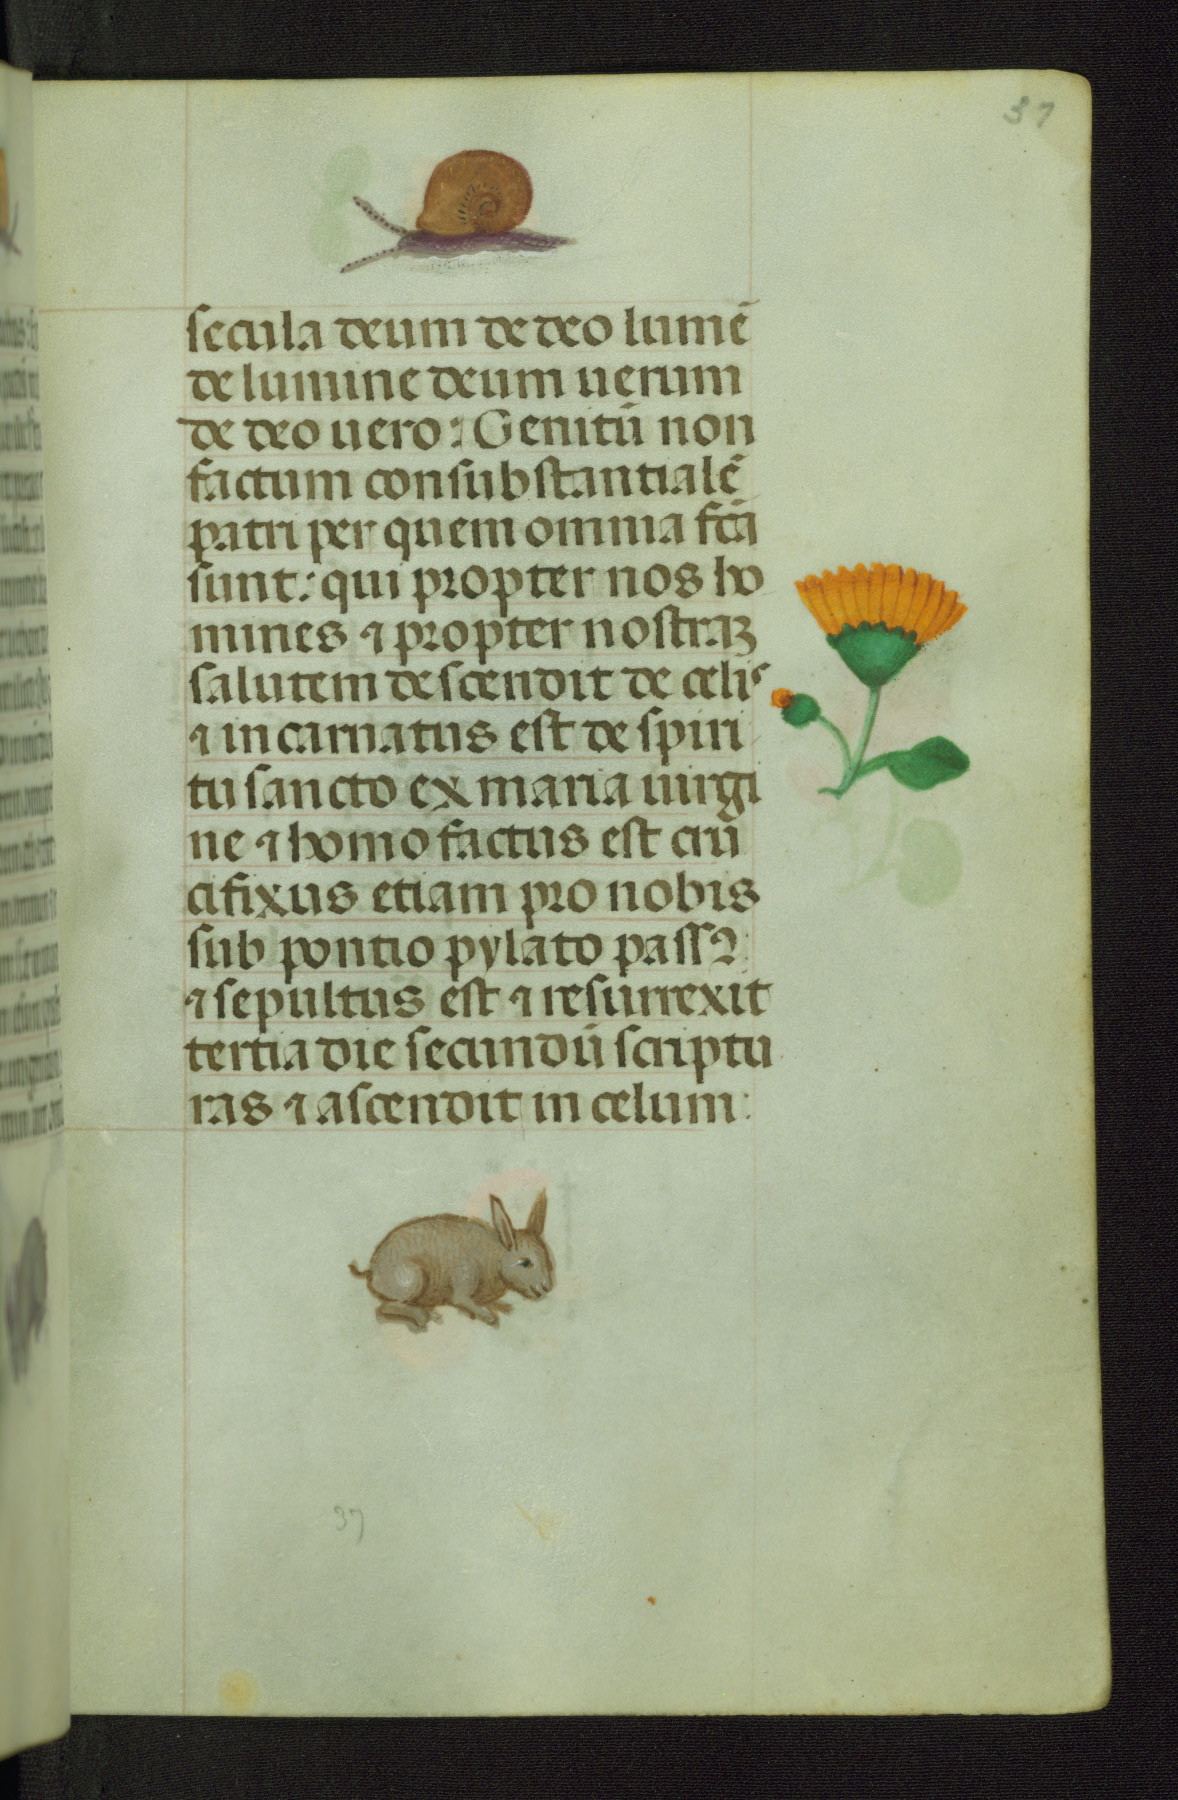 37
secula deum de deo lumē
de lumine deum uerum
de deo uero : Genitū non
factum consubstantialē
patri per quem omnia fc̄a
sunt : qui propter nos ho
mines ⁊ propter nostraꝫ
salutem descendit de celis
⁊ incarnatus est de spiri
tu sancto ex maria uirgi
ne ⁊ homo factus est cru
cifixus etiam pro nobis
sub pontio pylato passꝰ
⁊ sepultus est ⁊ resurrexit
tertia die secundū scriptu
ras ⁊ ascendit in celum :
37